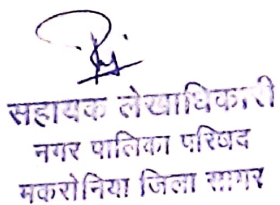 सहायक लेखाधिकारी
नगर पालिका परिषद
मकरोनिया जिला सागर